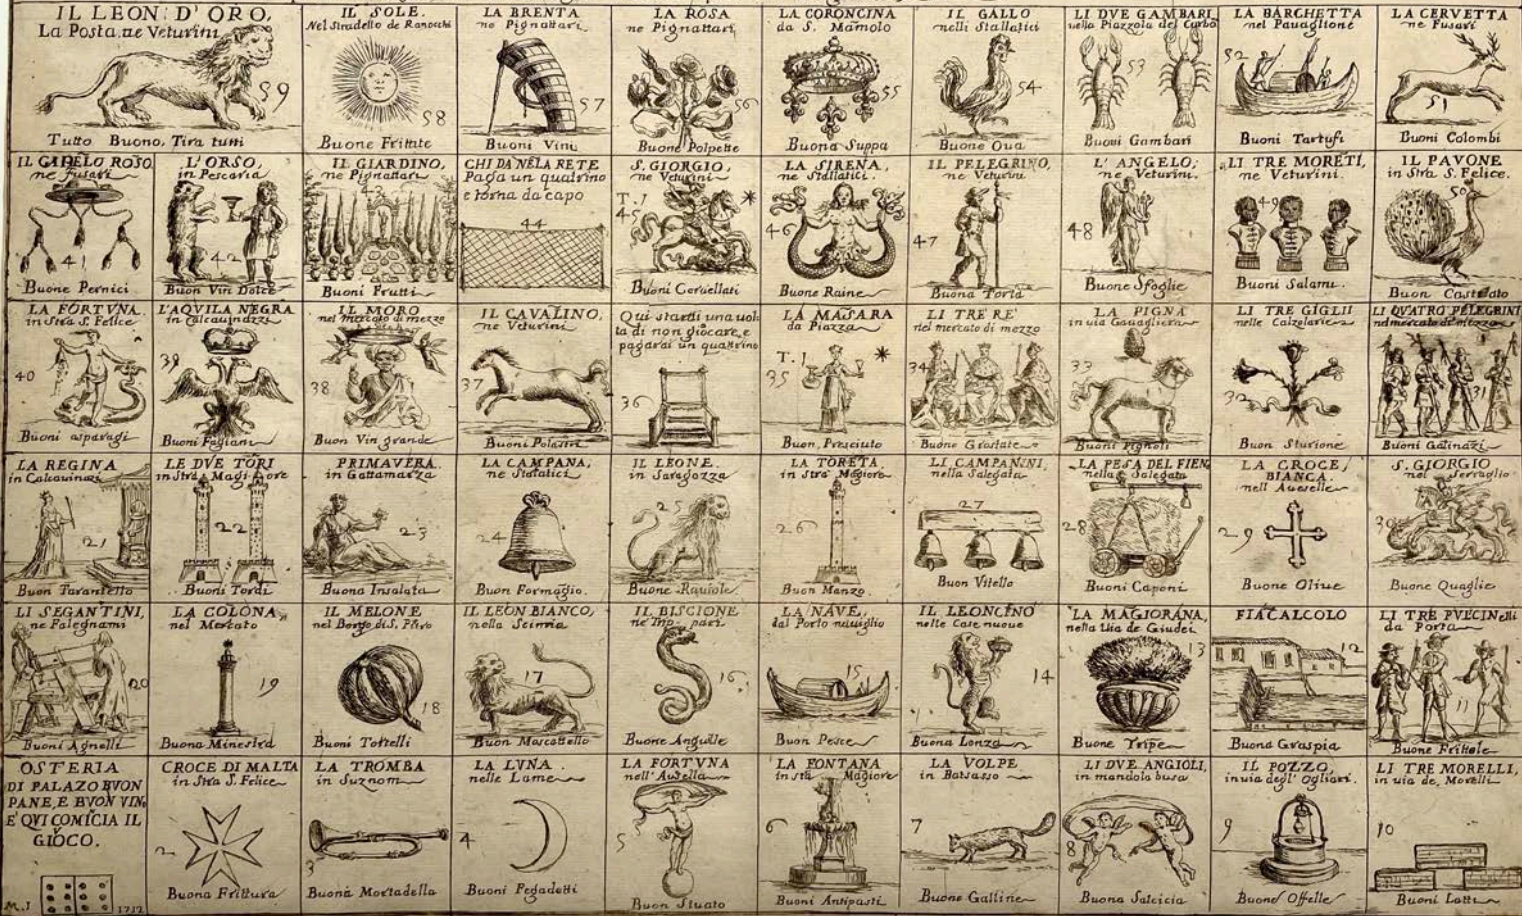 IL LEON D'ORO,
La Posta ne Veturini
59
Tutto Buono, Tira tutti
IL SOLE
Nel Stradello de Ranocchi
58
Buone Frittate
LA BRENTA
ne Pignattari
57
Buoni Vini
LA ROSA
ne Pignattari
56
Buone Polpette
LA CORONCINA
da S. Mamolo
55
Buona Suppa
IL GALLO
nelli Stallatici
54
Buone Oua
LI DVE GAMBARI
nella Piazzola del Corbo
53
Buoni Gambari
LA BARCHETTA
nel Pauaglione
52
Buoni Tartufi
LA CERVETTA
ne Fusari
51
Buoni Colombi
IL CAPELO ROSO
ne Fusari
41
Buone Pernici
L'ORSO,
in Pescaria
42
Buon Vin Dolce
IL GIARDINO,
ne Pignattari
43
Buoni Frutti
CHI DA NELA RETE
Paga un quatrino
e torna da capo
44
S. GIORGIO,
ne Veturini
T. 1
45
Buoni Ceruellati
LA SIRENA,
ne Stallatici.
46
Buone Raine
IL PELEGRINO,
ne Veturini
47
Buona Torta
L'ANGELO,
ne Veturini.
48
Buone Sfoglie
LI TRE MORETI,
ne Veturini.
49
Buoni Salami.
IL PAVONE
in Stra S. Felice.
50
Buon Castrato
LA FORTVNA
in Stra S. Felice
40
Buoni asparagi
L'AQVILA NEGRA
in Calcauinazzi
39
Buoni Fagiani
IL MORO
nel mercato di mezzo
38
Buon Vin grande
IL CAVALINO,
ne Veturini
37
Buoni Polastri
Qui starai una uol
ta di non giocare, e
pagarai un quattrino
36
LA MASARA
da Piazza
T. 1
35
Buon Presciuto
LI TRE RE'
nel mercato di mezzo
34
Buone Crostate
LA PIGNA
in uia Gauagliera
33
Buoni Pignoli
LI TRE GIGLII
nelle Calzolarie
32
Buon Sturione
LI QVATRO PELEGRINI
nel mercato di mezzo
31
Buoni Galinazi
LA REGINA
in Calcauinazi
21
Buon Tarantello
LE DVE TORI
in Stra Magiore
22
Buoni Tordi
PRIMAVERA
in Gattamarza
23
Buona Insalata
LA CAMPANA,
ne Stalatici
24
Buon Formagio.
IL LEONE.
in Saragozza
25
Buone Rauiole
LA TORETA
in Stra Magiore
26
Buon Manzo.
LI CAMPANINI,
nella Salegata
27
Buon Vitello
LA PESA DEL FIEN,
nella Salegata
28
Buoni Caponi
LA CROCE,
BIANCA.
nell Aueselle
29
Buone Oliue
S. GIORGIO
nel Serraglio
30
Buone Quaglie
LI SEGANTINI,
ne Falegnami
20
Buoni Agnelli
LA COLONA,
nel Mercato
19
Buona Minestra
IL MELONE
nel Borgo di S. Piero
18
Buoni Tortelli
IL LEON BIANCO,
nella Scimia
17
Buon Moscattello
IL BISCIONE
16
Buone Anguille
LA NAVE,
dal Porto nauiglio
15
Buon Pesce
IL LEONCINO
nelle Case nuoue
14
Buona Lonza
LA MAGIORANA,
nella Uia de Giudei
13
Buone Tripe
FIACALCOLO
12
Buona Graspia
LI TRE PVLCINelli
da Porta
11
Buone Frittole
OSTERIA
DI PALAZO BVON
PANE, E BVON VIN,
E' QVI COMICIA IL
GIOCO.
M. I 1712
CROCE DI MALTA
in Stra S. Felice
2
Buona Frittura
LA TROMBA
in Suznom
3
Buona Mortadella
LA LVNA
nelle Lame
4
Buoni Fegadetti
LA FORTVNA
nell' Auesella
5
Buon Stuato
LA FONTANA
in stra Magiore
6
Buoni Antipasti
LA VOLPE
in Batsasso
7
Buone Galline
LI DVE ANGIOLI,
in mandola busa
8
Buona Salcicia
IL POZZO,
in uia degl' Ogliari.
9
Buone Offelle
LI TRE MORELLI,
in uia de Morelli
10
Buoni Latti